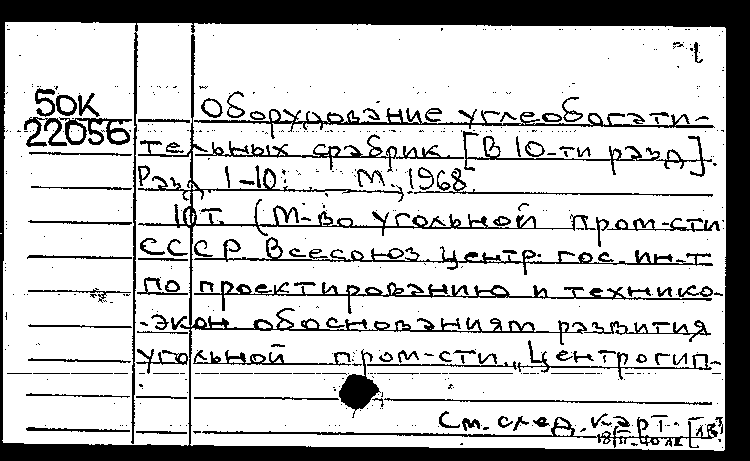 1
50К
22056
Оборудование углеобогати-
тельных фабрик. [В 10-ти разд].
Разд. 1-10: М., 1968.
10т. (М-во угольной пром-сти
СССР Всесоюз. центр. гос. ин-т
по проектированию и технико-
-экон обоснованиям развития
угольной пром-сти „Центрогип-
См. след. карт.